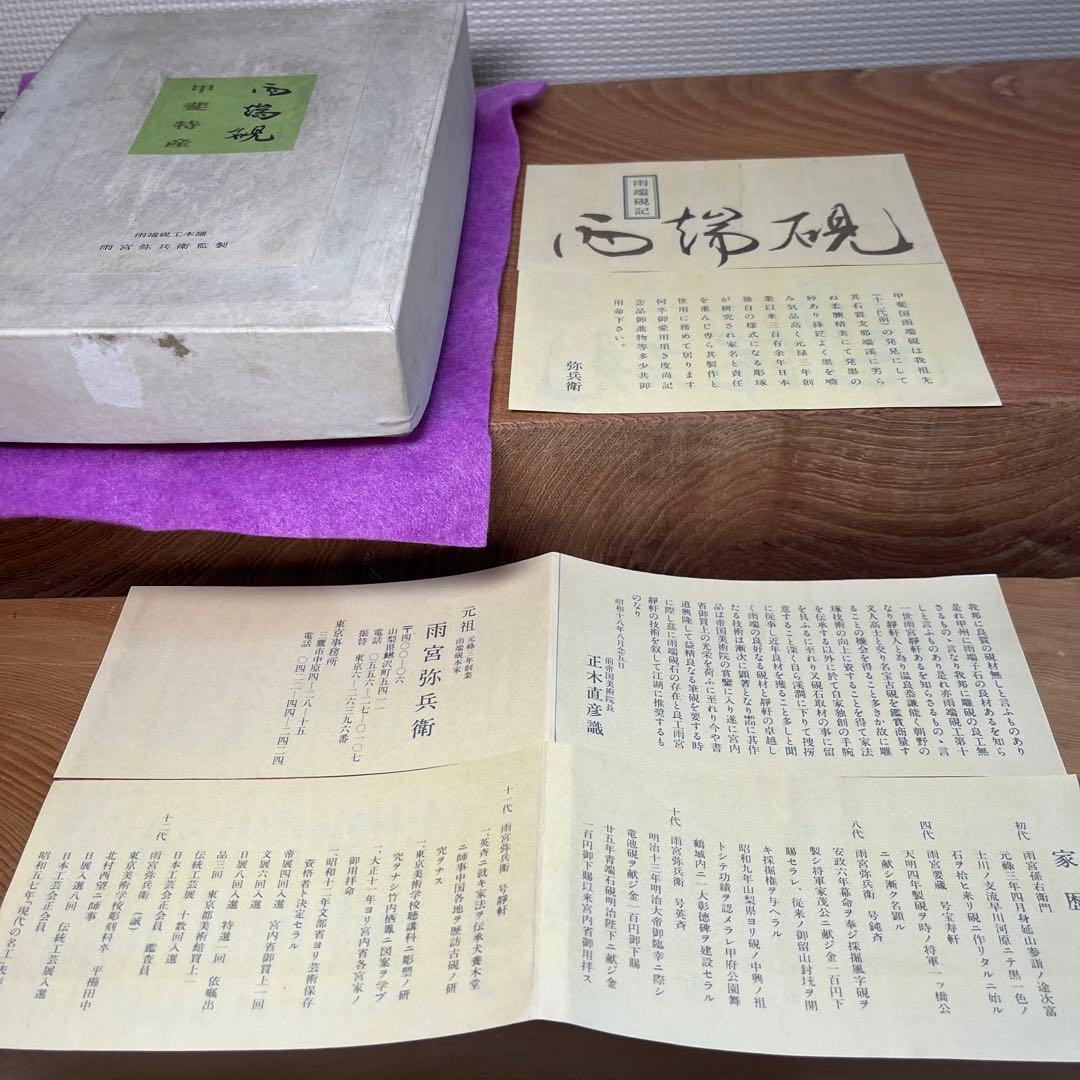 雨端硯
甲斐特産
雨端硯工本舗
雨宮弥兵衛監製
雨端硯記
雨端硯
甲斐国雨端硯は我祖先
(十二代前)の発見にして
其石質支那端渓に劣ら
ぬ柔膩精美にて発墨の
妙あり鋒鋩よく墨を噛
み気品高く元禄三年創
業以来三百有余年日本
独自の様式になる彫琢
が研究され家名と責任
を重んじ専ら其製作と
世用に務めて居ります
何卒御愛用頂き度尚記
念品御進物等多少共御
用命下さい。
弥兵衛
我邦に良質の硯材無しと言ふものあり
是れ甲州に雨端子石の良材あるを知ら
さるもの丶言なり我邦に雕硯の良工無
しと言ふものあり是れ亦雨端硯工第十
一世雨宮靜軒あるを知らさるもの丶言
なり靜軒人と為り温良恭謙能く朝野の
文人高士と交り名宝古硯を鑑賞商量す
ることの機会を得ること多きか故に雕
琢技術の向上に資することを得て家法
を伝承する以外に於て自家独創の手腕
を具ふるに至れり又硯石取材の事に留
意すること深く自ら溪澗に下りて捜榜
に従事し近年良材を獲ること多しと聞
く雨端の良好なる硯材と靜軒の卓越し
たる技術は漸次に顕著となり曩に其作
品は帝国美術院の賞鑒に入り遂に宮内
省御買上の光栄を荷ふに至れり今や書
道興隆して益精良なる筆硯を要する時
に際し玆に雨端硯石の存在と良工雨宮
靜軒の技術を叙して江湖に推奨するも
のなり
昭和十八年八月念五日
前帝国美術院長
正木直彦識
元祖
元祿三年創業
雨端硯本家
雨宮弥兵衛
〒四〇〇-〇六
山梨県鰍沢町五四一一
電話 〇五五六-二七-〇一〇七
振替 東京六-二六三九六番
東京事務所
三鷹市中原四-二八-十五
電話 〇四二二-四四-二四二四
家歴
初代 雨宮孫右衛門
元祿三年四月身延山参詣ノ途次富
士川ノ支流早川河原ニテ黒一色ノ
石ヲ拾ヒ来リ硯ニ作リタルニ始ル
四代 雨宮要蔵 号宝寿軒
天明四年製硯ヲ時ノ将軍一ツ橋公
ニ献ジ漸ク名顕ル
八代 雨宮弥兵衛 号鈍斉
安政六年幕命ヲ奉ジ採掘風字硯ヲ
製シ将軍家茂公ニ献ジ金一百円下
賜セラレ、従来ノ御留山封坑ヲ開
キ採掘権ヲ与ヘラル
昭和九年山梨県ヨリ硯ノ中興ノ祖
トシテ功績ヲ認メラレ甲府公園舞
鶴城内ニ一大彰徳碑ヲ建設セラル
十代 雨宮弥兵衛 号英斉
明治十三年明治大帝御臨幸ニ際シ
竜池硯ヲ献ジ金一百円御下賜
廿五年青端石硯明治陛下ニ献ジ金
一百円御下賜以来宮内省御用拝ス
十一代 雨宮弥兵衛 号靜軒
一、英斉ニ就キ家法ヲ伝承犬養木堂
ニ師事中国各地ヲ歴訪古硯ノ研
究ヲナス
一、東京美術学校聴講科ニ彫塑ノ研
究ヲナシ竹内栖鳳ニ図案ヲ学ブ
一、大正十一年ヨリ宮内省各宮家ノ
御用拝命
一、昭和十二年文部省ヨリ芸術保存
資格者ト決定セラル
帝展四回入選 宮内省御買上一回
文展六回入選
日展八回入選 特選一回 依嘱出
品三回 東京都美術館買上一
伝統工芸展 十数回入選
日本工芸会正会員
十二代 雨宮弥兵衛 (誠)
東京美術学校彫刻科卒
北村西望ニ師事 平櫛田中
日展入選八回
日本工芸会正会員 伝統工芸展入選
鑑査員
昭和五七年「現代の名工」